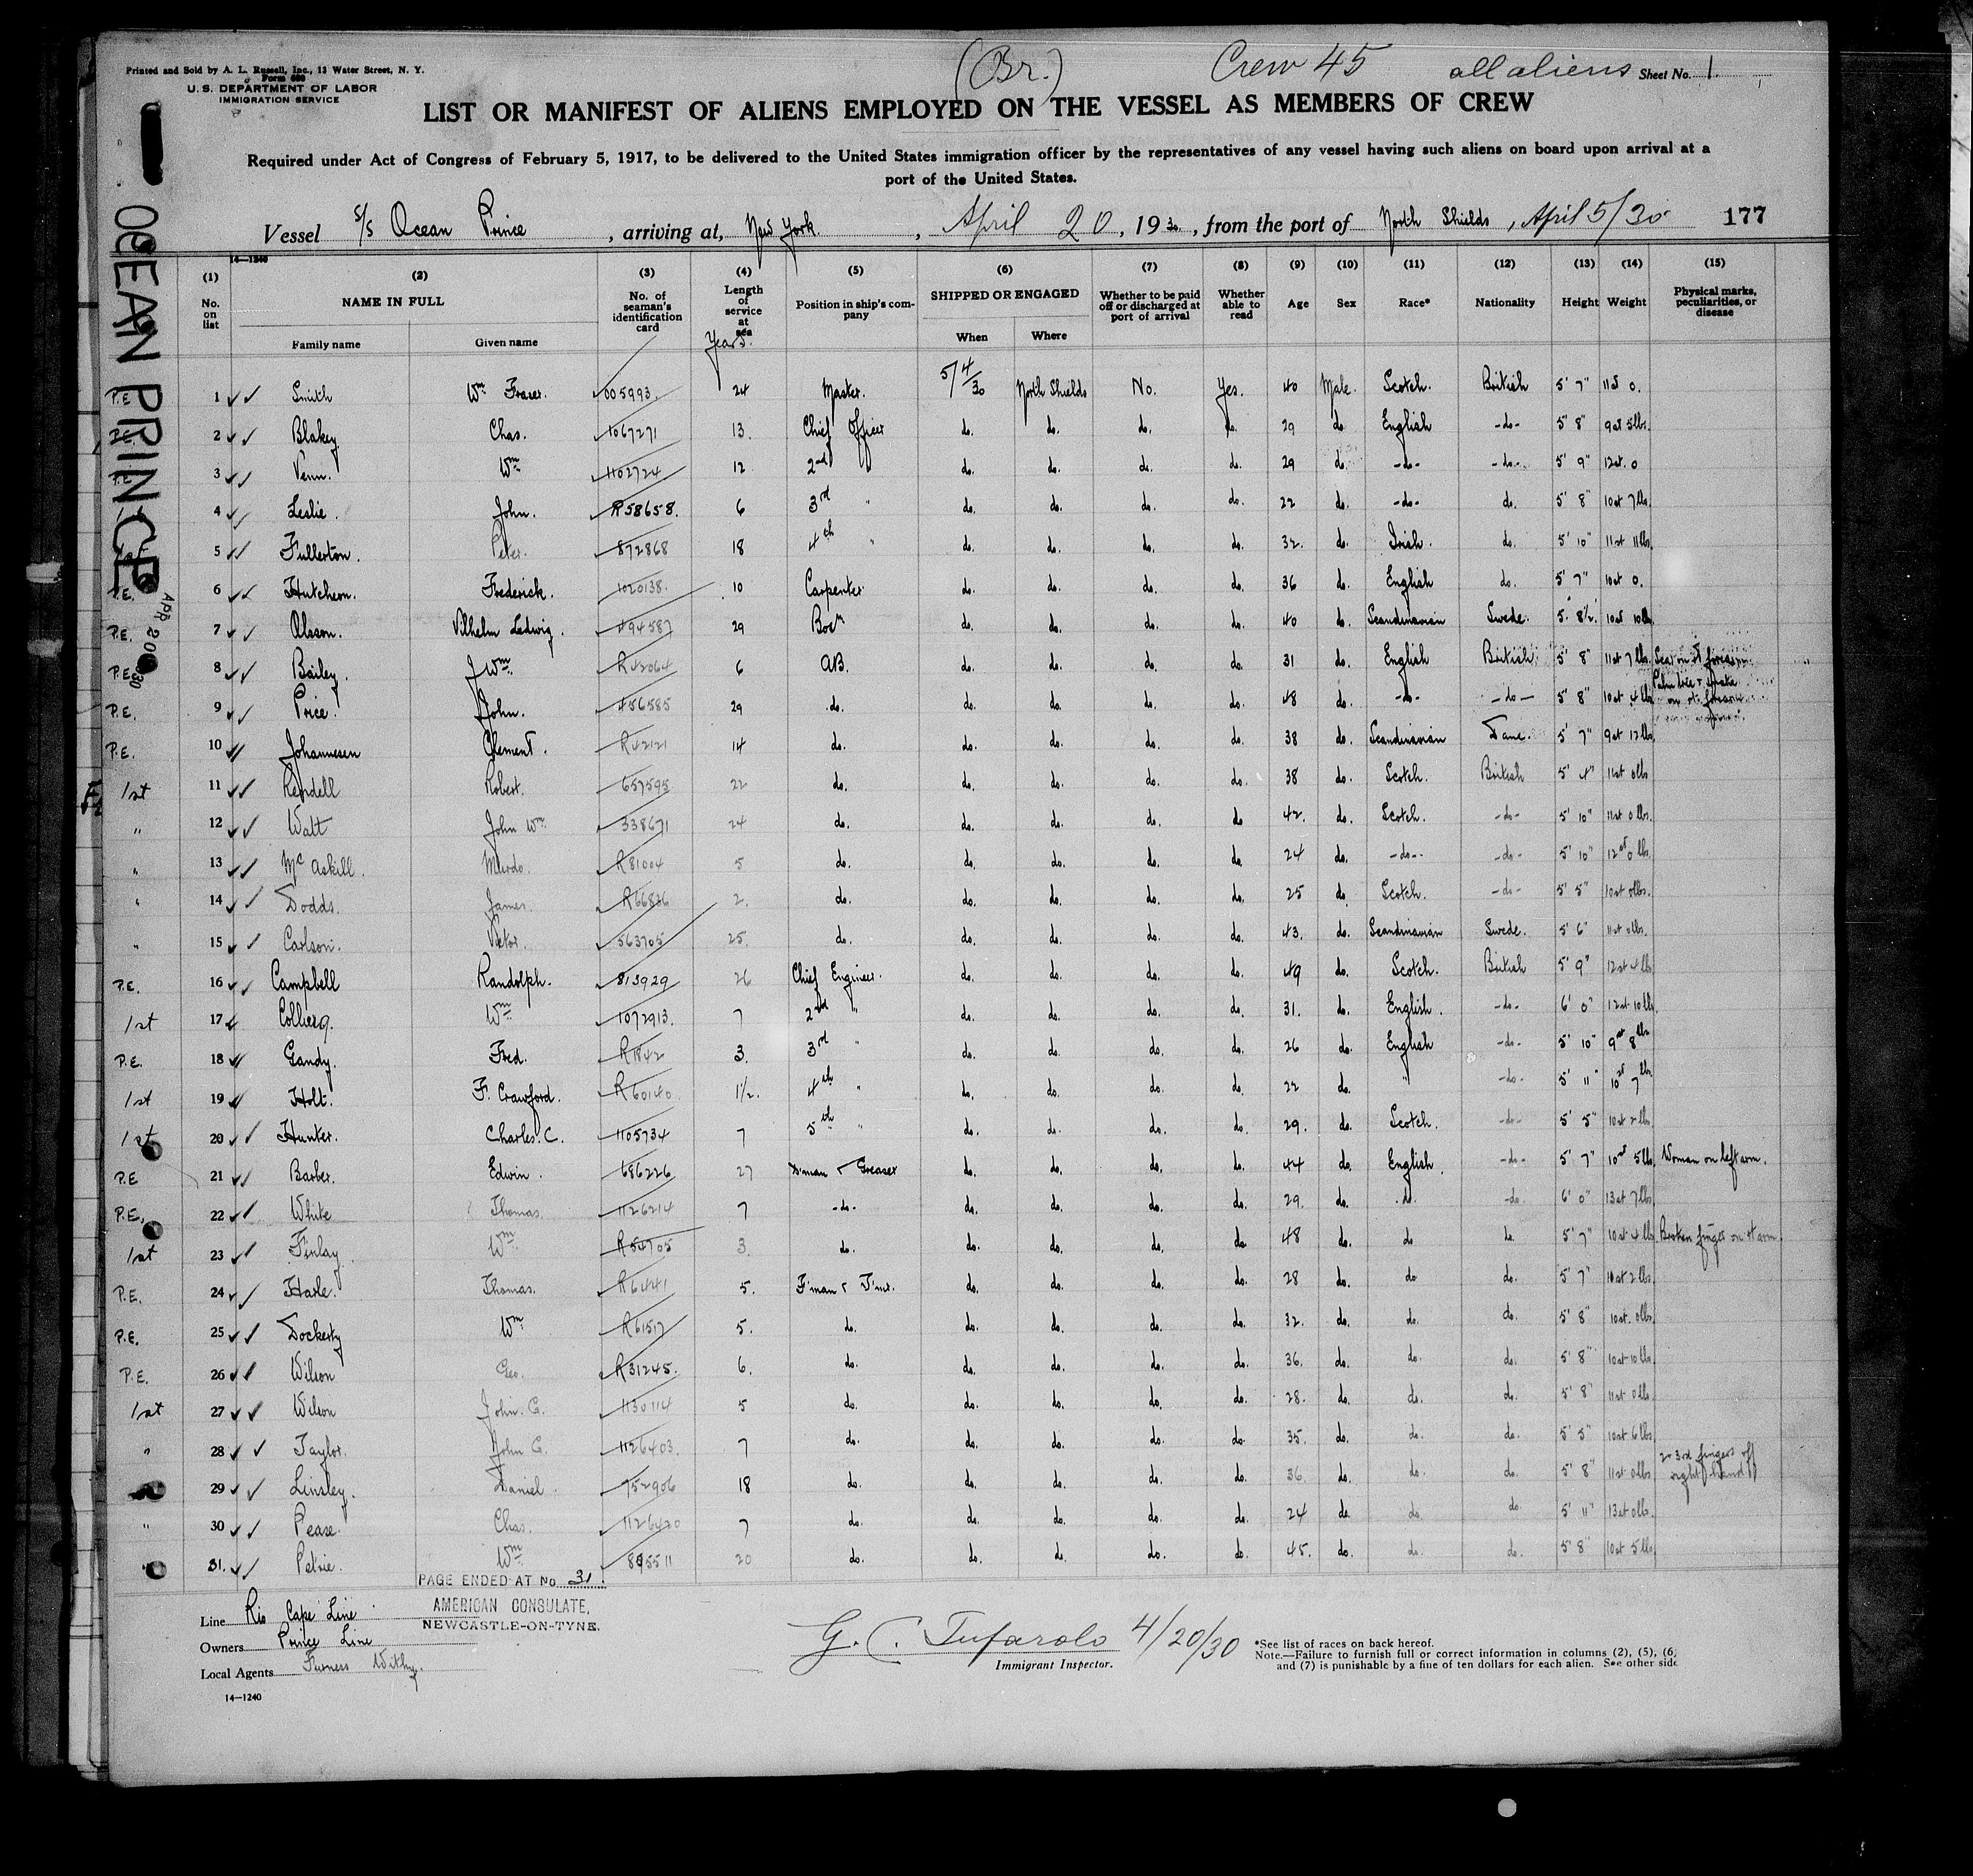 (Br.) Crew 45 all aliens Sheet No. 1
Printed and Sold by A. L. Russell, Inc., 13 Water Street, N. Y.
Form 680
U. S. DEPARTMENT OF LABOR
IMMIGRATION SERVICE
LIST OR MANIFEST OF ALIENS EMPLOYED ON THE VESSEL AS MEMBERS OF CREW
Required under Act of Congress of February 5, 1917, to be delivered to the United States immigration officer by the representatives of any vessel having such aliens on board upon arrival at a
port of the United States.
Vessel S/S Ocean Prince, arriving at, New York, April 20, 1930, from the port of North Shields, April 5/30 177
OCEAN PRINCE
APR 20 1930
14—1240
(1) (2) (3) (4) (5) (6) (7) (8) (9) (10) (11) (12) (13) (14) (15)
No. on list NAME IN FULL No. of seaman's identification card Length of service at sea Position in ship's company SHIPPED OR ENGAGED Whether to be paid off or discharged at port of arrival Whether able to read Age Sex Race* Nationality Height Weight Physical marks, peculiarities, or disease
Family name Given name Years. When Where
P.E 1 Smith Wm Fraser. 005993. 24 Master. 5/4/30 North Shields No. Yes. 40 Male. Scotch. British 5' 7" 11st 0.
P.E. 2 Blakey. Chas. 1067271 13. Chief Officer do. do. do. do. 29 do English -do- 5' 8" 9st 5lbs.
P.E. 3 Venn. Wm 1102724 12 2nd " do. do. do. do. 29 do. -do- -do-. 5' 9" 12st. 0
4 Leslie. John. R58658. 6 3rd " do. do. do. do. 22 do. -do- do. 5' 8" 10st 7lbs.
5 Fullerton. Peter. 872868 18 4th " do. do. do. do. 32. do. Irish. do. 5' 10" 11st 11lbs.
P.E. 6 Hutcheon. Frederick. 1020138. 10 Carpenter. do. do. do. do. 36 do. English do. 5' 7" 10st 0.
P.E. 7 Olsson. Vilhelm Ludwig. 494587 29 Bosn do. do. do. do. 40 do. Scandinavian Swede. 5' 8½" 10st 10lbs
P.E. 8 Bailey. J Wm. R42064 6 AB. do. do. do. do. 31 do. English British 5' 8" 11st 7 lbs. Scar on forearm
P.E. 9 Price. John. 456585 29 do. do. do. do. do. 48 do. -do- -do- 5' 8" 10st 4lbs Palm tree & snake on rt. forearm
P.E. 10 Johannesen Clement. R42121 14 do. do. do. do. do. 38 do. Scandinavian Dane. 5' 7" 9st 12lbs.
1st 11 Rendell Robert. 657595 22 do. do. do. do. do. 38 do. Scotch. British 5' 4" 11st 0lbs
" 12 Watt John Wm. 338671 24 do. do. do. do. do 42. do. Scotch. -do- 5' 10" 11st 0 lbs.
" 13 Mc Askill. Murdo. R81004 5 do. do. do. do. do 24 do. -do-. -do- 5' 10" 12st 0 lbs.
" 14 Dodds. James. R66836 2. do. do. do. do. do. 25 do. Scotch. -do- 5' 5" 10st 0lbs.
" 15 Carlson. Victor. 563705 25. do. do. do. do. do. 43. do. Scandinavian Swede. 5' 6" 11st 0lbs.
P.E. 16 Campbell Randolph. 813929 26 Chief Engineer. do. do. do. do. 49 do. Scotch. British 5' 9" 12st 4 lbs
1st 17 Wm 1072913. 7 2nd " do. do. do. do. 31. do. English. -do- 6' 0" 12st 10lbs.
P.E. 18 Gandy. Fred. R1842 3. 3rd " do. do. do. do. 26 do. English -do- 5' 10" 9st 8lbs
1st 19 Holt. F. Crawford. R60140. 1½. 4th " do. do. do. do. 22 do. " -do-. 5' 11" 10st 7lbs.
1st 20 Hunter. Charles. C. 1105734 7 5th " do. do. do. do. 29. do. Scotch. -do- 5' 5" 10st 2lbs
P.E 21 Barber. Edwin. 686226 27 D'man & Greaser do. do. do. do. 44 do. English. -do- 5' 7" 10st 5lbs. Woman on left arm.
P.E. 22 White Thomas. 1126214 7 -do-. do. do. do. do. 29. do. do. -do. 6' 0" 13st 7lbs.
1st 23 Finlay Wm R54705 3. do. do. do. do. do 48 do. do do. 5' 7" 10st 4 lbs Broken finger on rt arm.
P.E. 24 Harle. Thomas. R6441 5. F'man & T'mr. do. do. do. do. 28 do. do do. 5' 7" 10st 2lbs.
P.E. 25 Dockerty Wm R61517 5. do. do. do. do. do. 32. do. do. do. 5' 8" 10st. 0lbs
P.E. 26 Wilson Geo. R31245. 6. do. do. do. do. do. 36. do. do. do. 5' 8" 10st 10 lbs.
1st 27 Wilson John. G. 1130114 5 do. do. do. do. do. 28. do. do. do. 5' 8" 11st 0lbs
" 28 Taylor. John G. 1126403. 7 do. do. do. do. do. 35. do. do. do. 5' 5" 10st 6lbs.
29 Linsley. Daniel. 752906 18 do. do. do. do. do. 36. do. do. do. 5' 8" 11st 0lbs 2 & 3rd fingers off right hand
" 30 Pease. Chas. 1126420 7 do. do. do. do. do. 24 do. do do. 5' 11" 13st 0lbs.
31. Petrie. Wm 895511 20 do. do. do. do. do. 45. do. do. do. 5' 8" 10st 5 lbs
PAGE ENDED AT No 31.
AMERICAN CONSULATE,
NEWCASTLE-ON-TYNE.
Line Rio Cape Line
Owners Prince Line
Local Agents Furness Withy.
14—1240
G. C. Tufarolo 4/20/30
Immigrant Inspector.
*See list of races on back hereof.
Note.—Failure to furnish full or correct information in columns (2), (5), (6)
and (7) is punishable by a fine of ten dollars for each alien. See other side